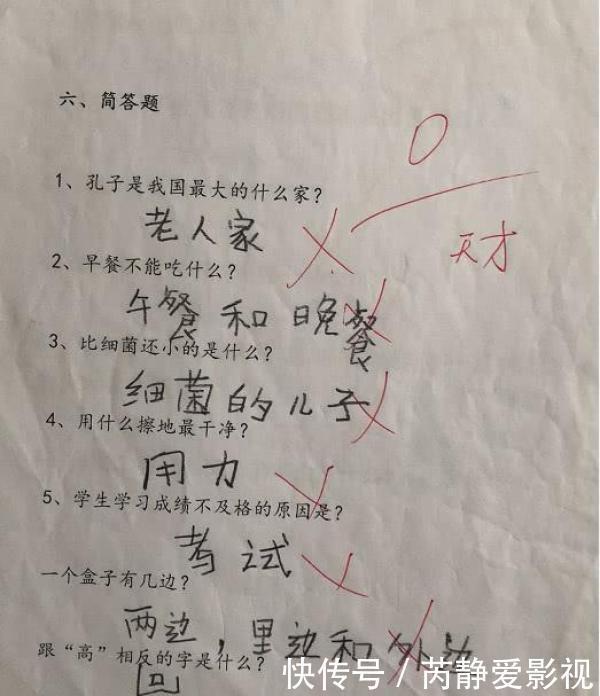 六、简答题
0
天才
1、孔子是我国最大的什么家?
老人家
2、早餐不能吃什么?
午餐和晚餐
3、比细菌还小的是什么?
细菌的儿子
4、用什么擦地最干净?
用力
5、学生学习成绩不及格的原因是?
考试
一个盒子有几边?
两边,里边和外边
跟“高”相反的字是什么?
快传号/芮静爱影视